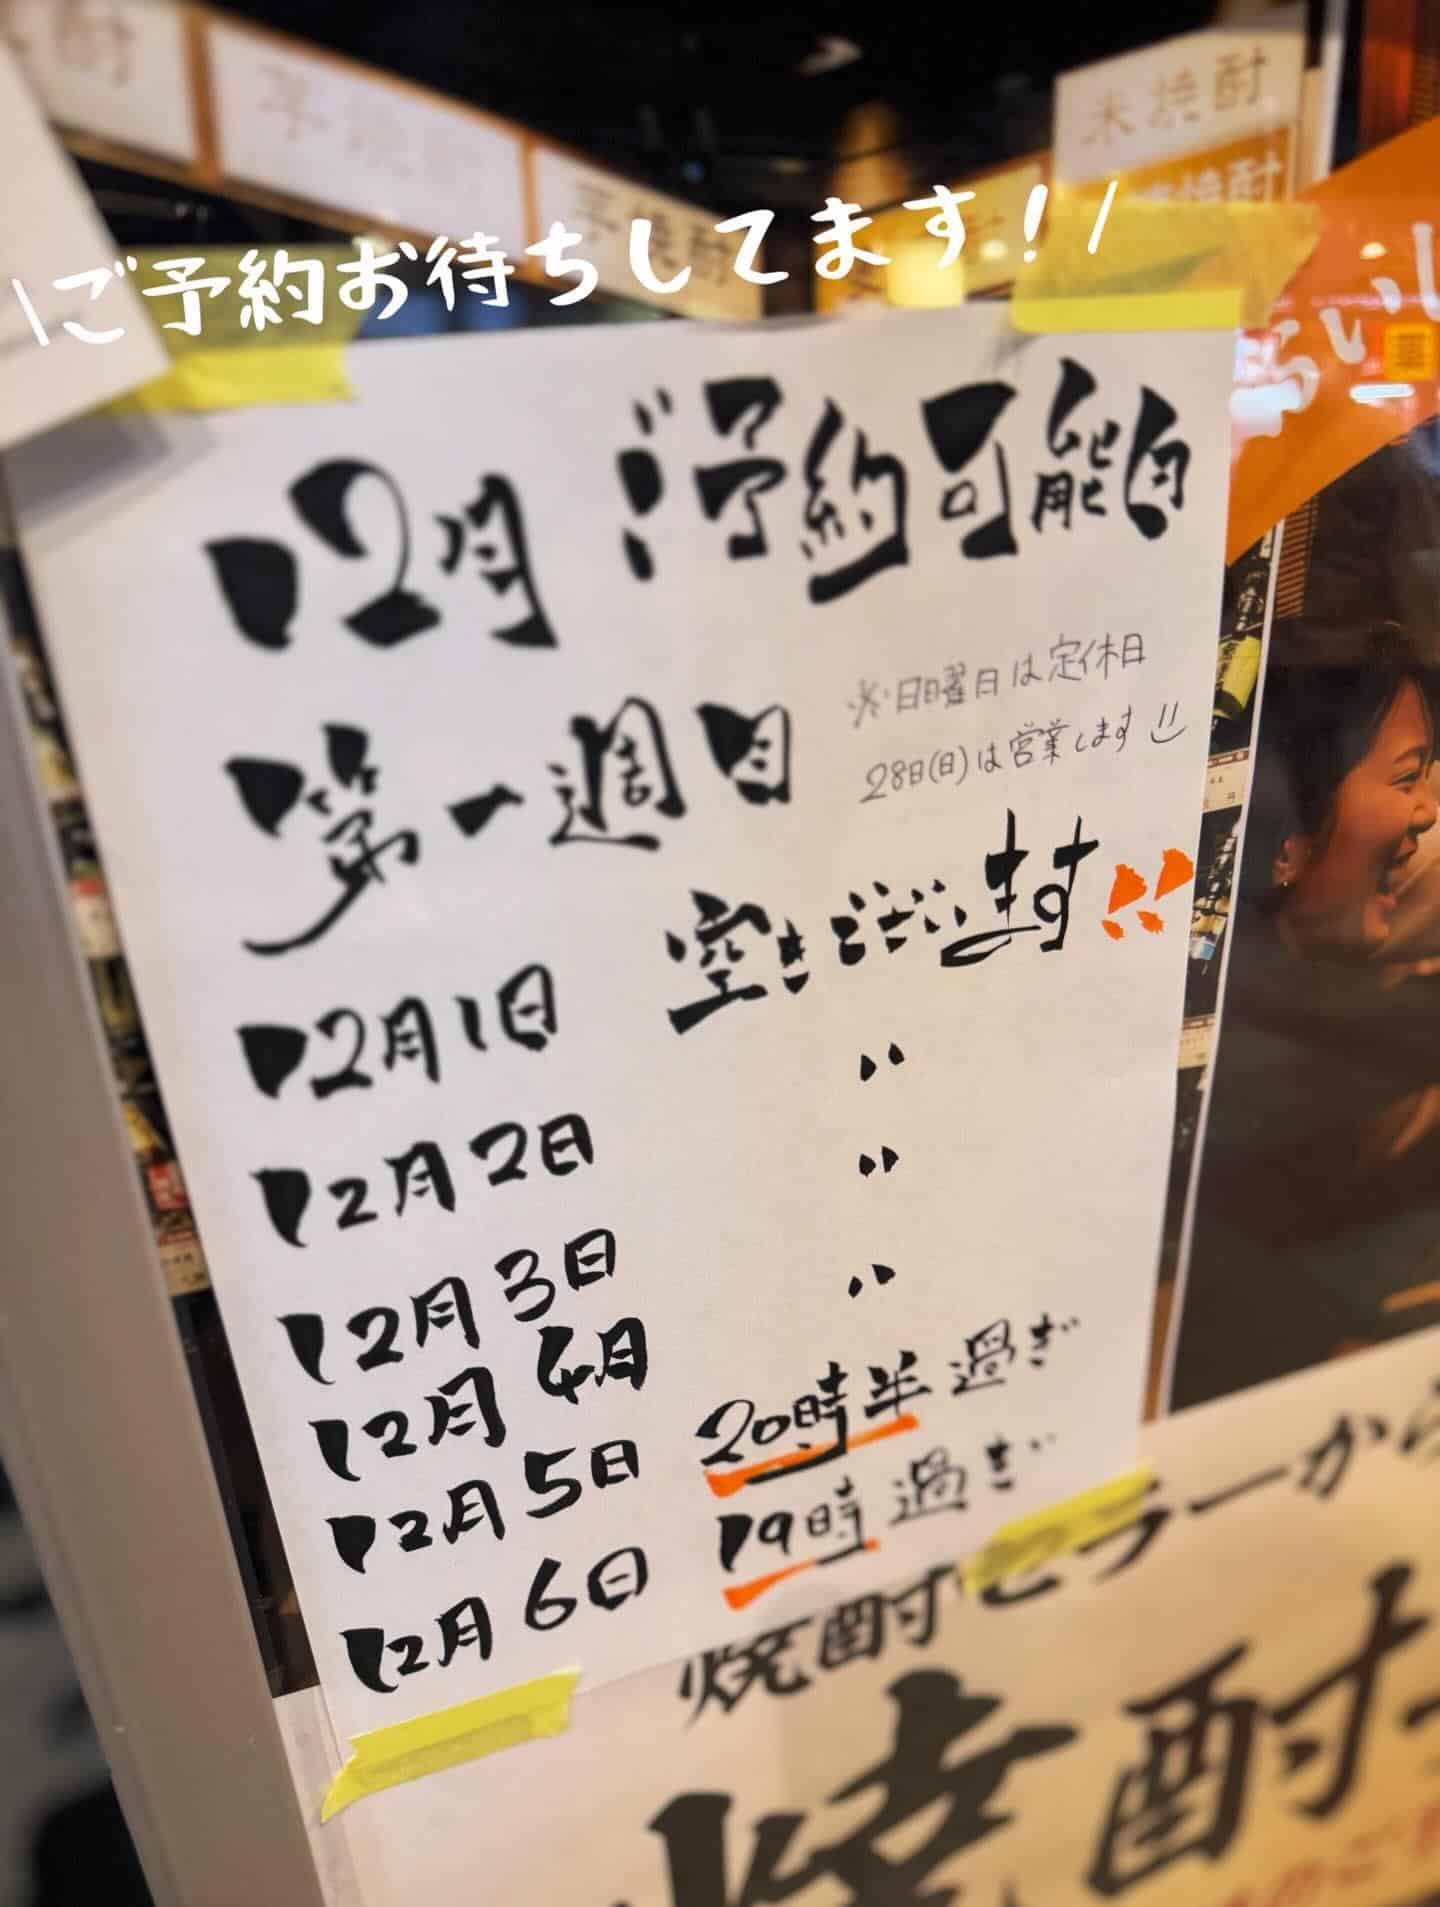 米焼酎
芋焼酎
芋焼酎
\ご予約お待ちしてます！/
12月 ご予約可能日
第一週目
※日曜日は定休日
28日(日)は営業します
12月1日 空きございます!!
12月2日 〃
12月3日 〃
12月4日 〃
12月5日 20時半過ぎ
12月6日 19時過ぎ
焼酎セラーから
焼酎